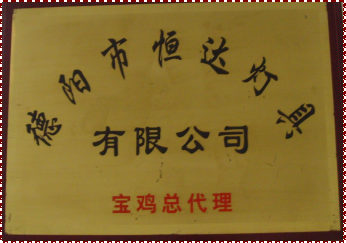 德阳市恒达灯道
有限公司
宝鸡总代理